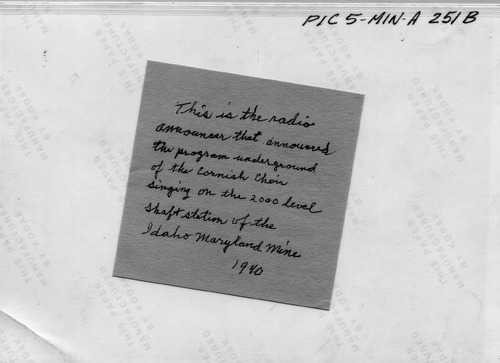 PIC 5-MIN-A 251B
This is the radio
announcer that announced
the program underground
of the Cornish Choir
singing on the 2000 level
shaft station of the
Idaho Maryland Mine
1940
THIS PAPER
MANUFACTURED
BY KODAK